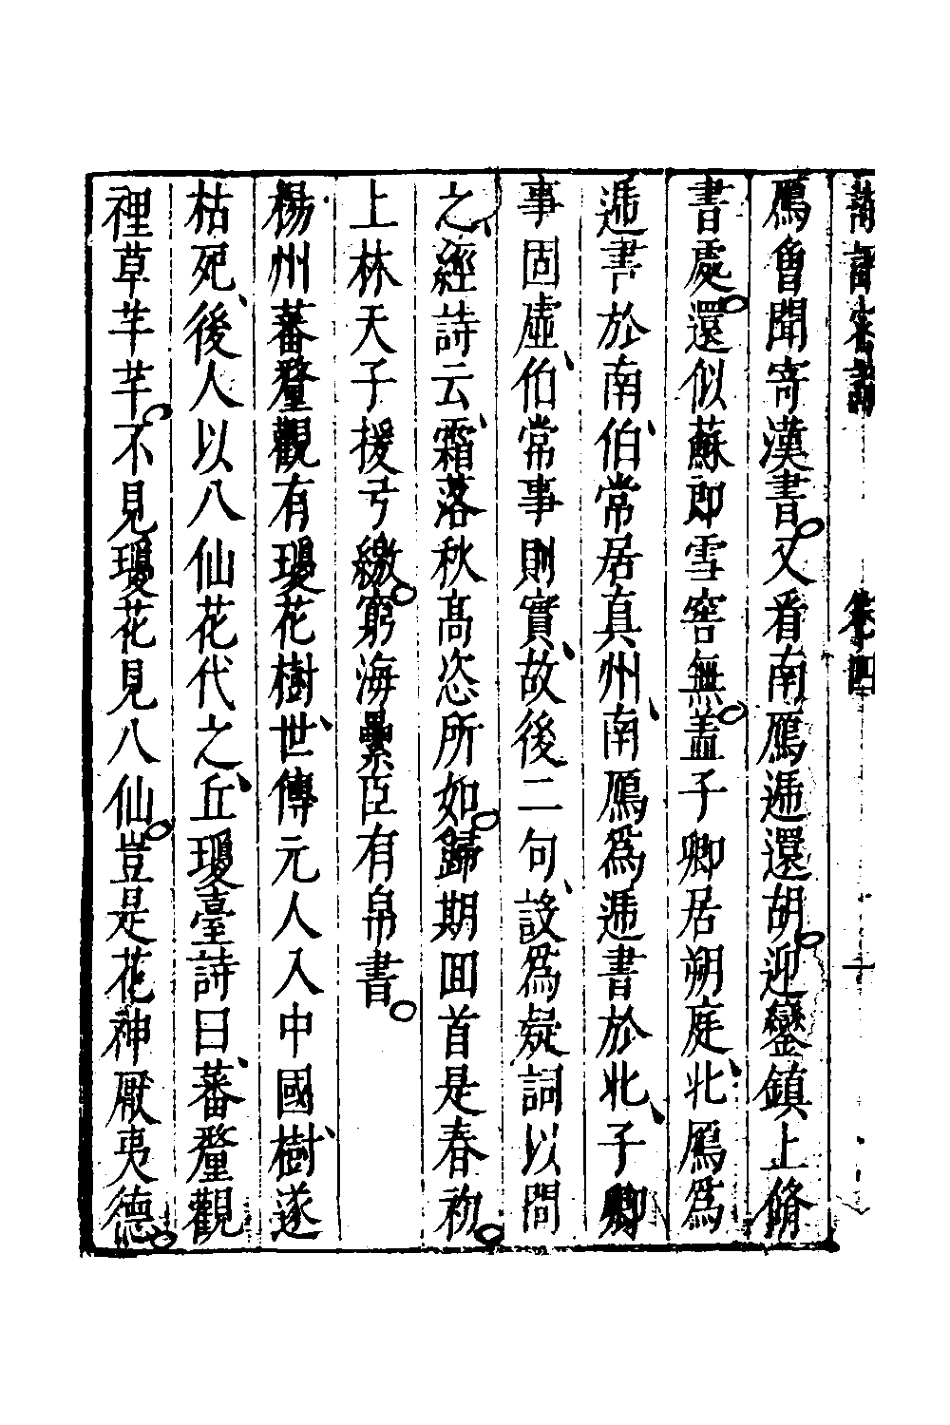 鴈曾聞寄漢書又看南鴈遞還胡迎鑾鎮上脩
書處還似蘇卿雪窖無盖子卿居朔庭北鴈爲
遞書於南伯常居真州南鴈爲遞書於北子卿
事固虛伯常事則實故後二句設爲疑詞以問
之經詩云霜落秋髙恣所如歸期回首是春初
上林天子援弓繳窮海纍臣有帛書
楊州蕃釐觀有瓊花樹世傳元人入中國樹遂
枯死後人以八仙花代之丘瓊臺詩曰蕃釐觀
裡草芊芊不見瓊花見八仙豈是花神厭夷德